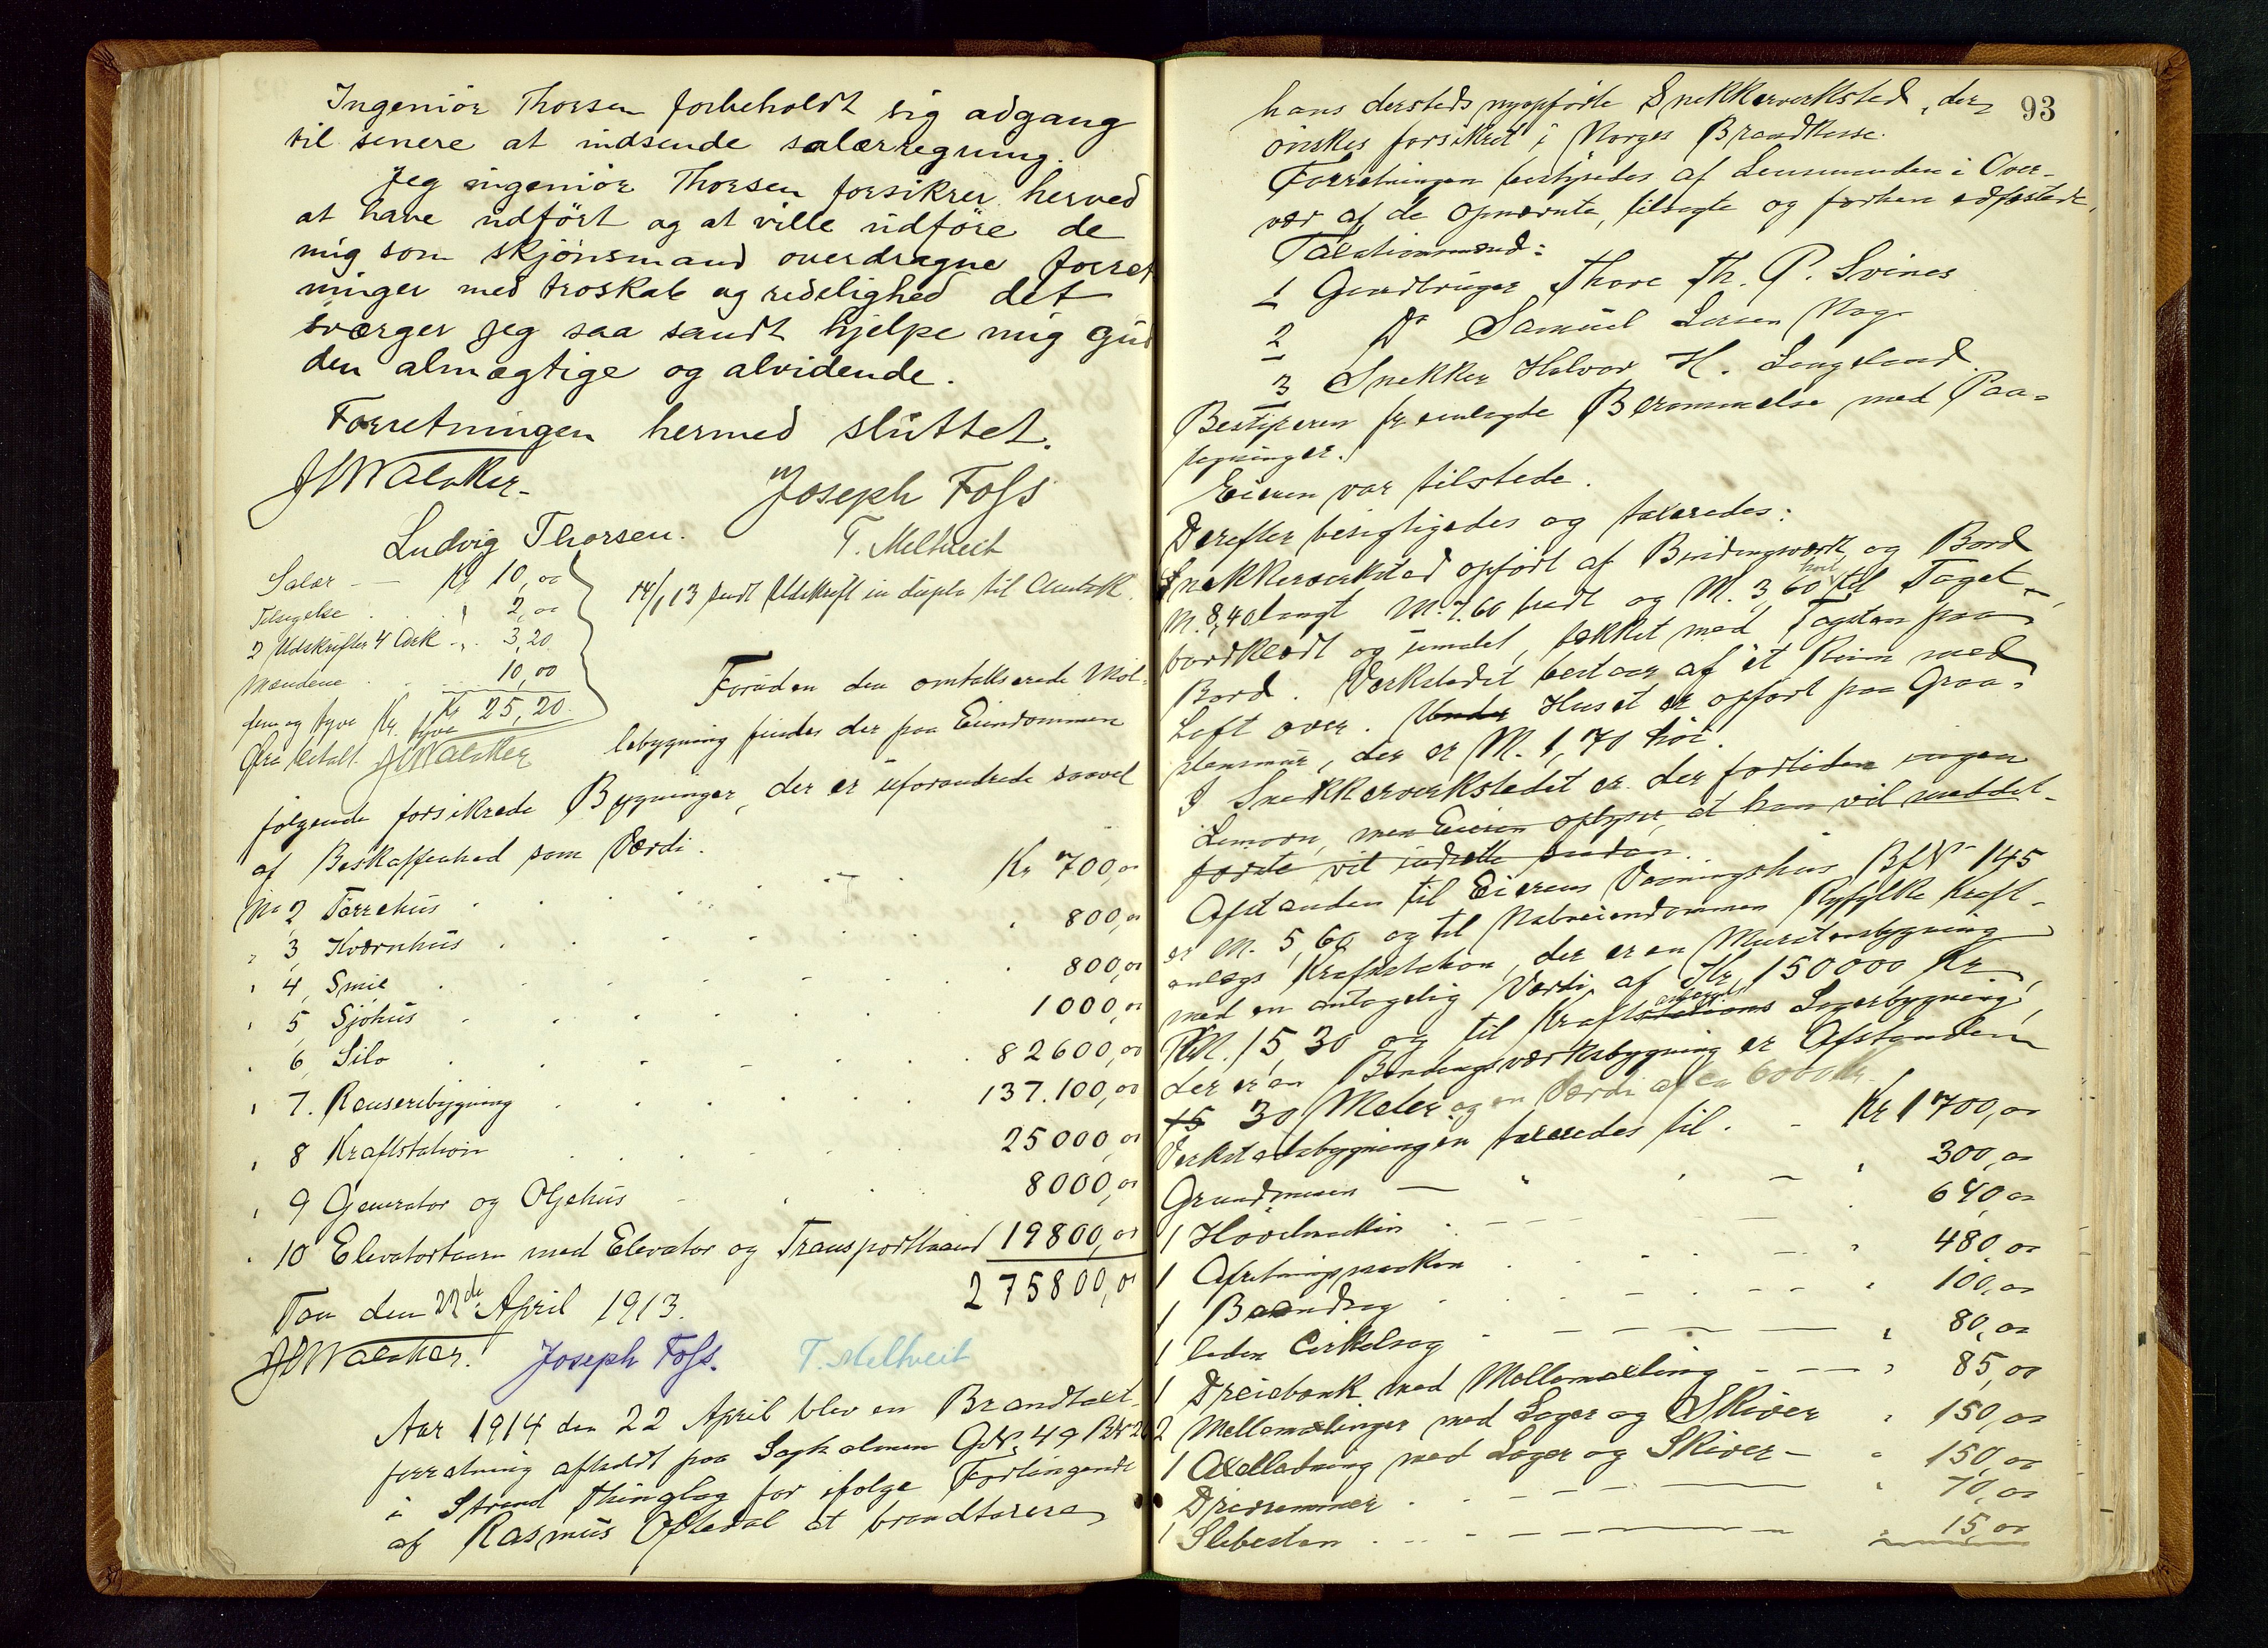 Ingeniör Thorsen forbeholdt sig adgang
til senere at indsende salærregning.
Jeg ingeniör Thorsen forsikrer herved
at have udfört og at ville udföre de
mig som skjönsmand overdragne forret
ninger med troskab og redelighed det
sværger jeg saa sandt hjelpe mig Gud
den almægtige og alvidende.
Forretningen hermed sluttet.
Joseph Foss
Ludvig Thorsen. T. Meltveit
Salær — — Kr 10,00
Tilsigelse . . " 2,00
2 Udskrifter 4 Ark . " 3,20
Mændene . . . 10,00
Kr 25,20
fem og tyve Kr. tyve
Øre betalt.
14/1 13 sendt Udskrift in duplo til Amtsk.
Foruden den omtakserede Möl-
lebygning findes der paa Eiendommen
følgende forsikrede Bygninger, der er uforandrede saavel
af Beskaffenhed som Værdi.
No 2, Tørrehus . . . Kr 700,00
" 3, Kvernhus . . . " 800,00
" 4, Smie . . . " 800,00
" 5, Sjöhus . . . 1000,00
" 6, Silo . . . 82600,00
" 7. Renseribygning . . . 137.100,00
" 8 Kraftstation . . . 25000,00
" 9 Generator og Oljehus . . . 8000,00
" 10 Elevatortaarn med Elevator og Transportbaand 19800,00
275800,00
Tau den 22de April 1913.
Joseph Foss. T. Meltveit
Aar 1914 den 22 April blev en Brandtaxt-
forretning afholdt paa Sagholmen GN. 49 BN 20
i Strand Thinglag for ifølge Forlangende
af Rasmus Oftedal at brandtaxere
93
hans dersteds nyopførte Snekkerverksted, der
ønskes forsikret i Norges Brandkasse.
Forretningen bestyredes af Lensmanden i Over-
vær af de opnævnte, tilsagte og forhen edfæstede
Taxationsmænd:
1 Gardbruger Thore Th. P. Svines
2 Do Samuel Larsen Nag
3 Snekker Halvor H. Langeland.
Bestyreren fremlagde Berammelse med Paa-
tegninger.
Eieren var tilstede.
Derefter besigtigedes og taxeredes:
Snekkerverksted opført af Bindingsverk og Bord
M. 8,40 langt M. 7.60 bredt og M. 3,60 höit til Taget,
bordklædt og umalet, tækket med Tagsten paa
Bord. Verkstedet bestaar af et Rum med
Loft over. Under Huset er opført paa Graa-
stensmur, der er M. 1,70 höi.
I Snekkerverkstedet er der fortiden ingen
Limovn, men Eieren oplyser, at han vil meddet-
forste vil indrette saadan.
Afstanden til Eierens Vaaningshus BfN 145
er M. 5,60 og til Naboeiendommen Ryfylke Kraft-
anlægs Kraftstation, der er en Murstensbygning
med en antagelig Værdi af Kr 150000 Kr,
M. 15,30 og til Kraftstations anlægets Lagerbygning,
der er en Bindingsværksbygning er Afstanden
15 30 Meter og en Værdi af ca 6000 Kr.
Verkstedsbygningen taxeredes til . - Kr 1700,00
Grundmuren — " . - " 300,00
1 Høvelmaskin . — — 640,00
1 Afretningsmaskin . . . — " 480,00
1 Baandsag . . . — " 100,00
1 liden Cirkelsag - — — " 80,00
1 Dreiebænk med Mellemaxling - — — " 85,00
2 Mellemaxlinger med Lager og Skiver " 150,00
1 Axelledning med Lager og Skiver — " 150,00
Drivremmer . . — — " 70,00
1 Slibesten . . — — " 15,00